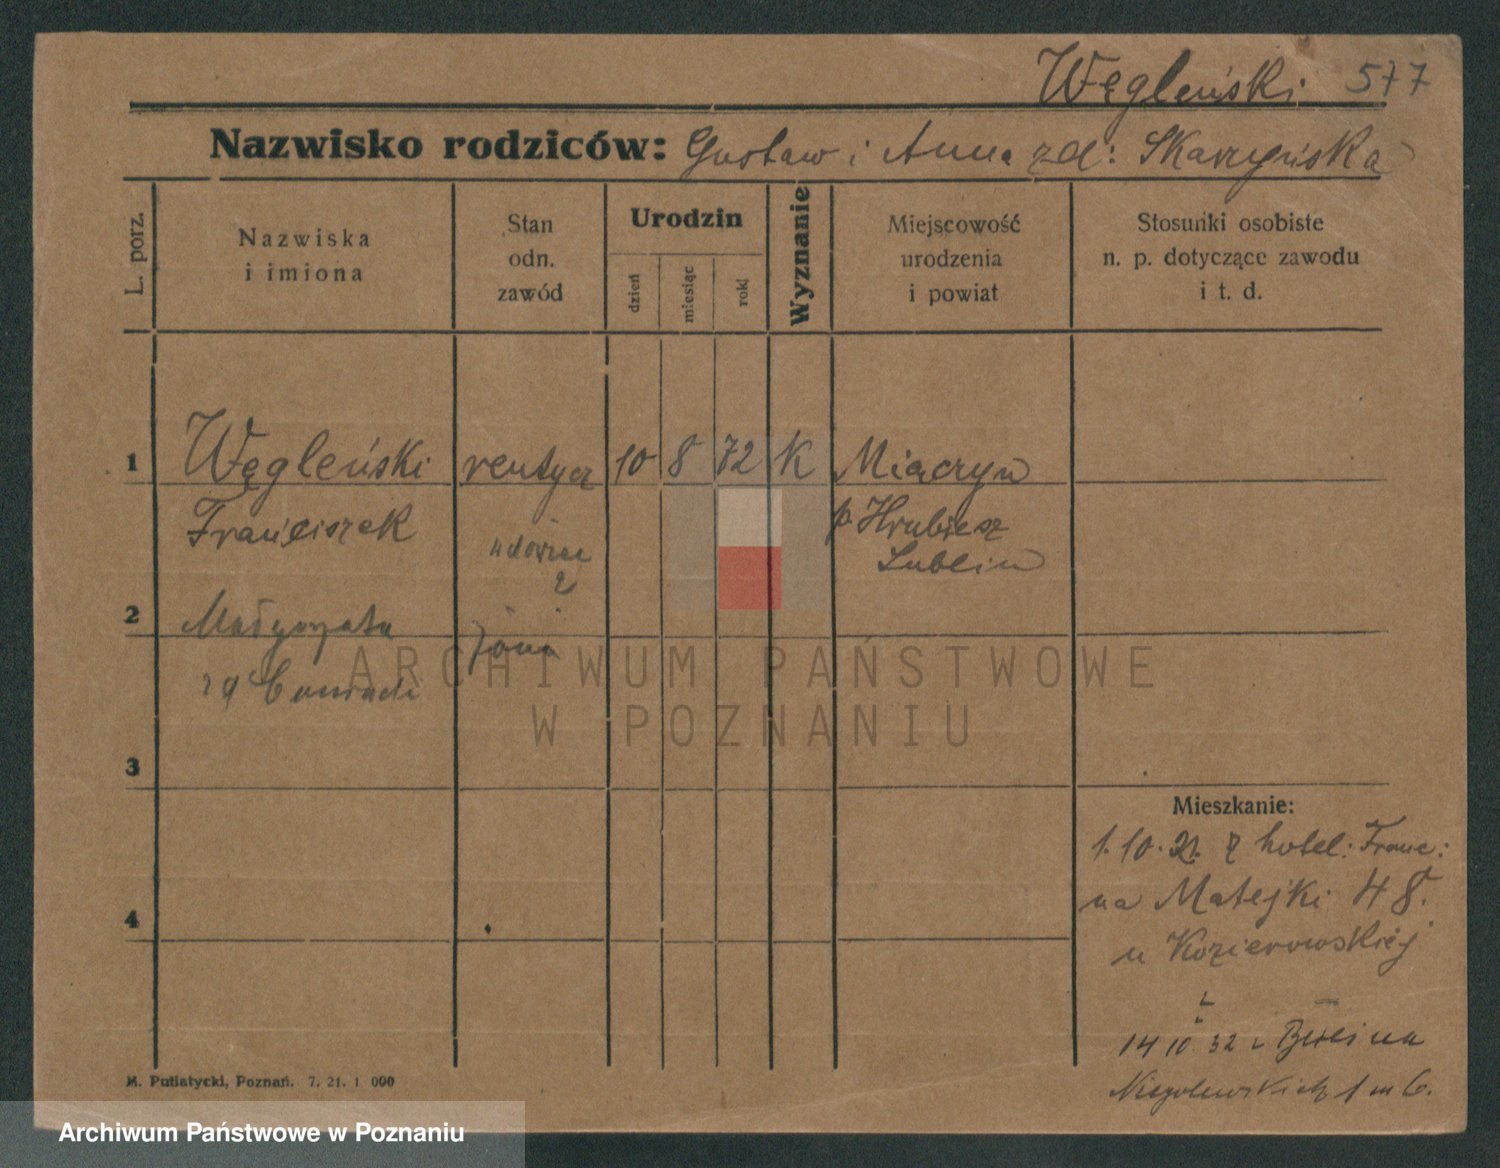 Węgleński 577
Nazwisko rodziców: Gustaw i Anna zd: Skarzyńska
L. porz.
Nazwiska
i imiona
Stan
odn.
zawód
Urodzin
dzień
miesiąc
rok
Wyznanie
Miejscowość
urodzenia
i powiat
Stosunki osobiste
n. p. dotyczące zawodu
i t. d.
1 Węgleński rentyer 10 8 72 K Miączyn
Franciszek p. Hrubiesz
Lublin
2 Małgorzata żona
3
4
Mieszkanie:
1. 10. 21. z hotel: Franc:
na Matejki 48.
u Kozierowskiej
14 10 32 z Berlina
Niegolewskich 1 m 6.
M. Putiatycki, Poznań. 7. 21. 1 000
ARCHIWUM PAŃSTWOWE
W POZNANIU
Archiwum Państwowe w Poznaniu